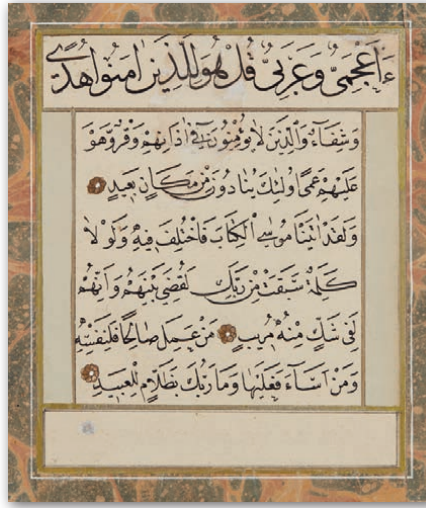 ءَاَعْجَمِىٌّ وَعَرَبِىٌّ قُلْ هُوَ لِلَّذِينَ اٰمَنُوا هُدًى
وَشِفَاءٌ وَالَّذِينَ لَا يُؤْمِنُونَ فِى اٰذَانِهِمْ وَقْرٌ وَهُوَ
عَلَيْهِمْ عَمًى اُولٰئِكَ يُنَادَوْنَ مِنْ مَكَانٍ بَعِيدٍ
وَلَقَدْ اٰتَيْنَا مُوسَى الْكِتَابَ فَاخْتُلِفَ فِيهِ وَلَوْ لَا
كَلِمَةٌ سَبَقَتْ مِنْ رَبِّكَ لَقُضِىَ بَيْنَهُمْ وَاِنَّهُمْ
لَفِى شَكٍّ مِنْهُ مُرِيبٍ مَنْ عَمِلَ صَالِحًا فَلِنَفْسِهِ
وَمَنْ اَسَاءَ فَعَلَيْهَا وَمَا رَبُّكَ بِظَلَّامٍ لِلْعَبِيدِ